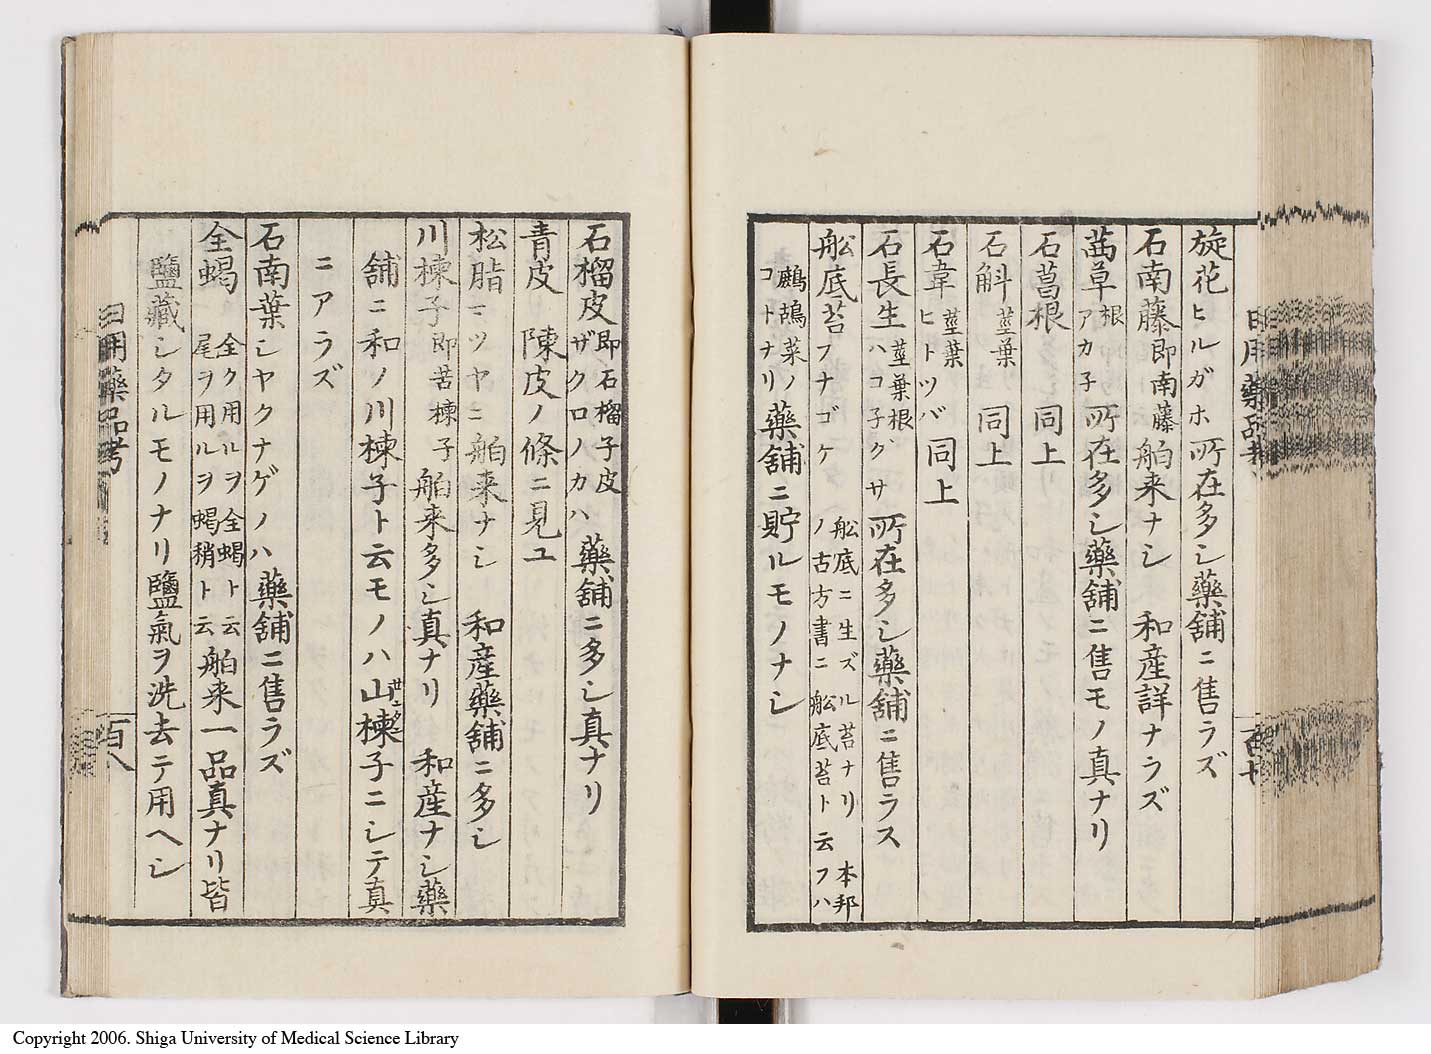 旋花ヒルガホ 所在多シ藥舖ニ售ラズ
石南藤即南藤 舶来ナシ 和産詳ナラズ
茜草根アカ子 所在多シ藥舖ニ售モノ真ナリ
石菖根 同上
石斛莖葉 同上
石韋莖葉ヒトツバ 同上
石長生莖葉根ハコ子グサ 所在多シ藥舖ニ售ラス
舩底苔フナゴケ 舩底ニ生ズル苔ナリ 本邦ノ古方書ニ舩底苔ト云フハ
鷓鴣菜ノコトナリ 藥舖ニ貯ルモノナシ
日用藥品考
百七
石榴皮即石榴子皮ザクロノハカハ 藥舖ニ多シ真ナリ
青皮 陳皮ノ條ニ見ユ
松脂マツヤニ 舶来ナシ 和産藥舖ニ多シ
川楝子即苦楝子 舶来多シ真ナリ 和産ナシ藥
舖ニ和ノ川楝子ト云モノハ山楝子ニシテ真
ニアラズ
石南葉シヤクナゲノハ 藥舖ニ售ラズ
全蝎 全ク用ルヲ全蝎ト云尾ヲ用ルヲ蝎稍ト云 舶来一品真ナリ皆
鹽藏シタルモノナリ鹽氣ヲ洗去テ用ヘシ
日用藥品考
百八
Copyright 2006. Shiga University of Medical Science Library